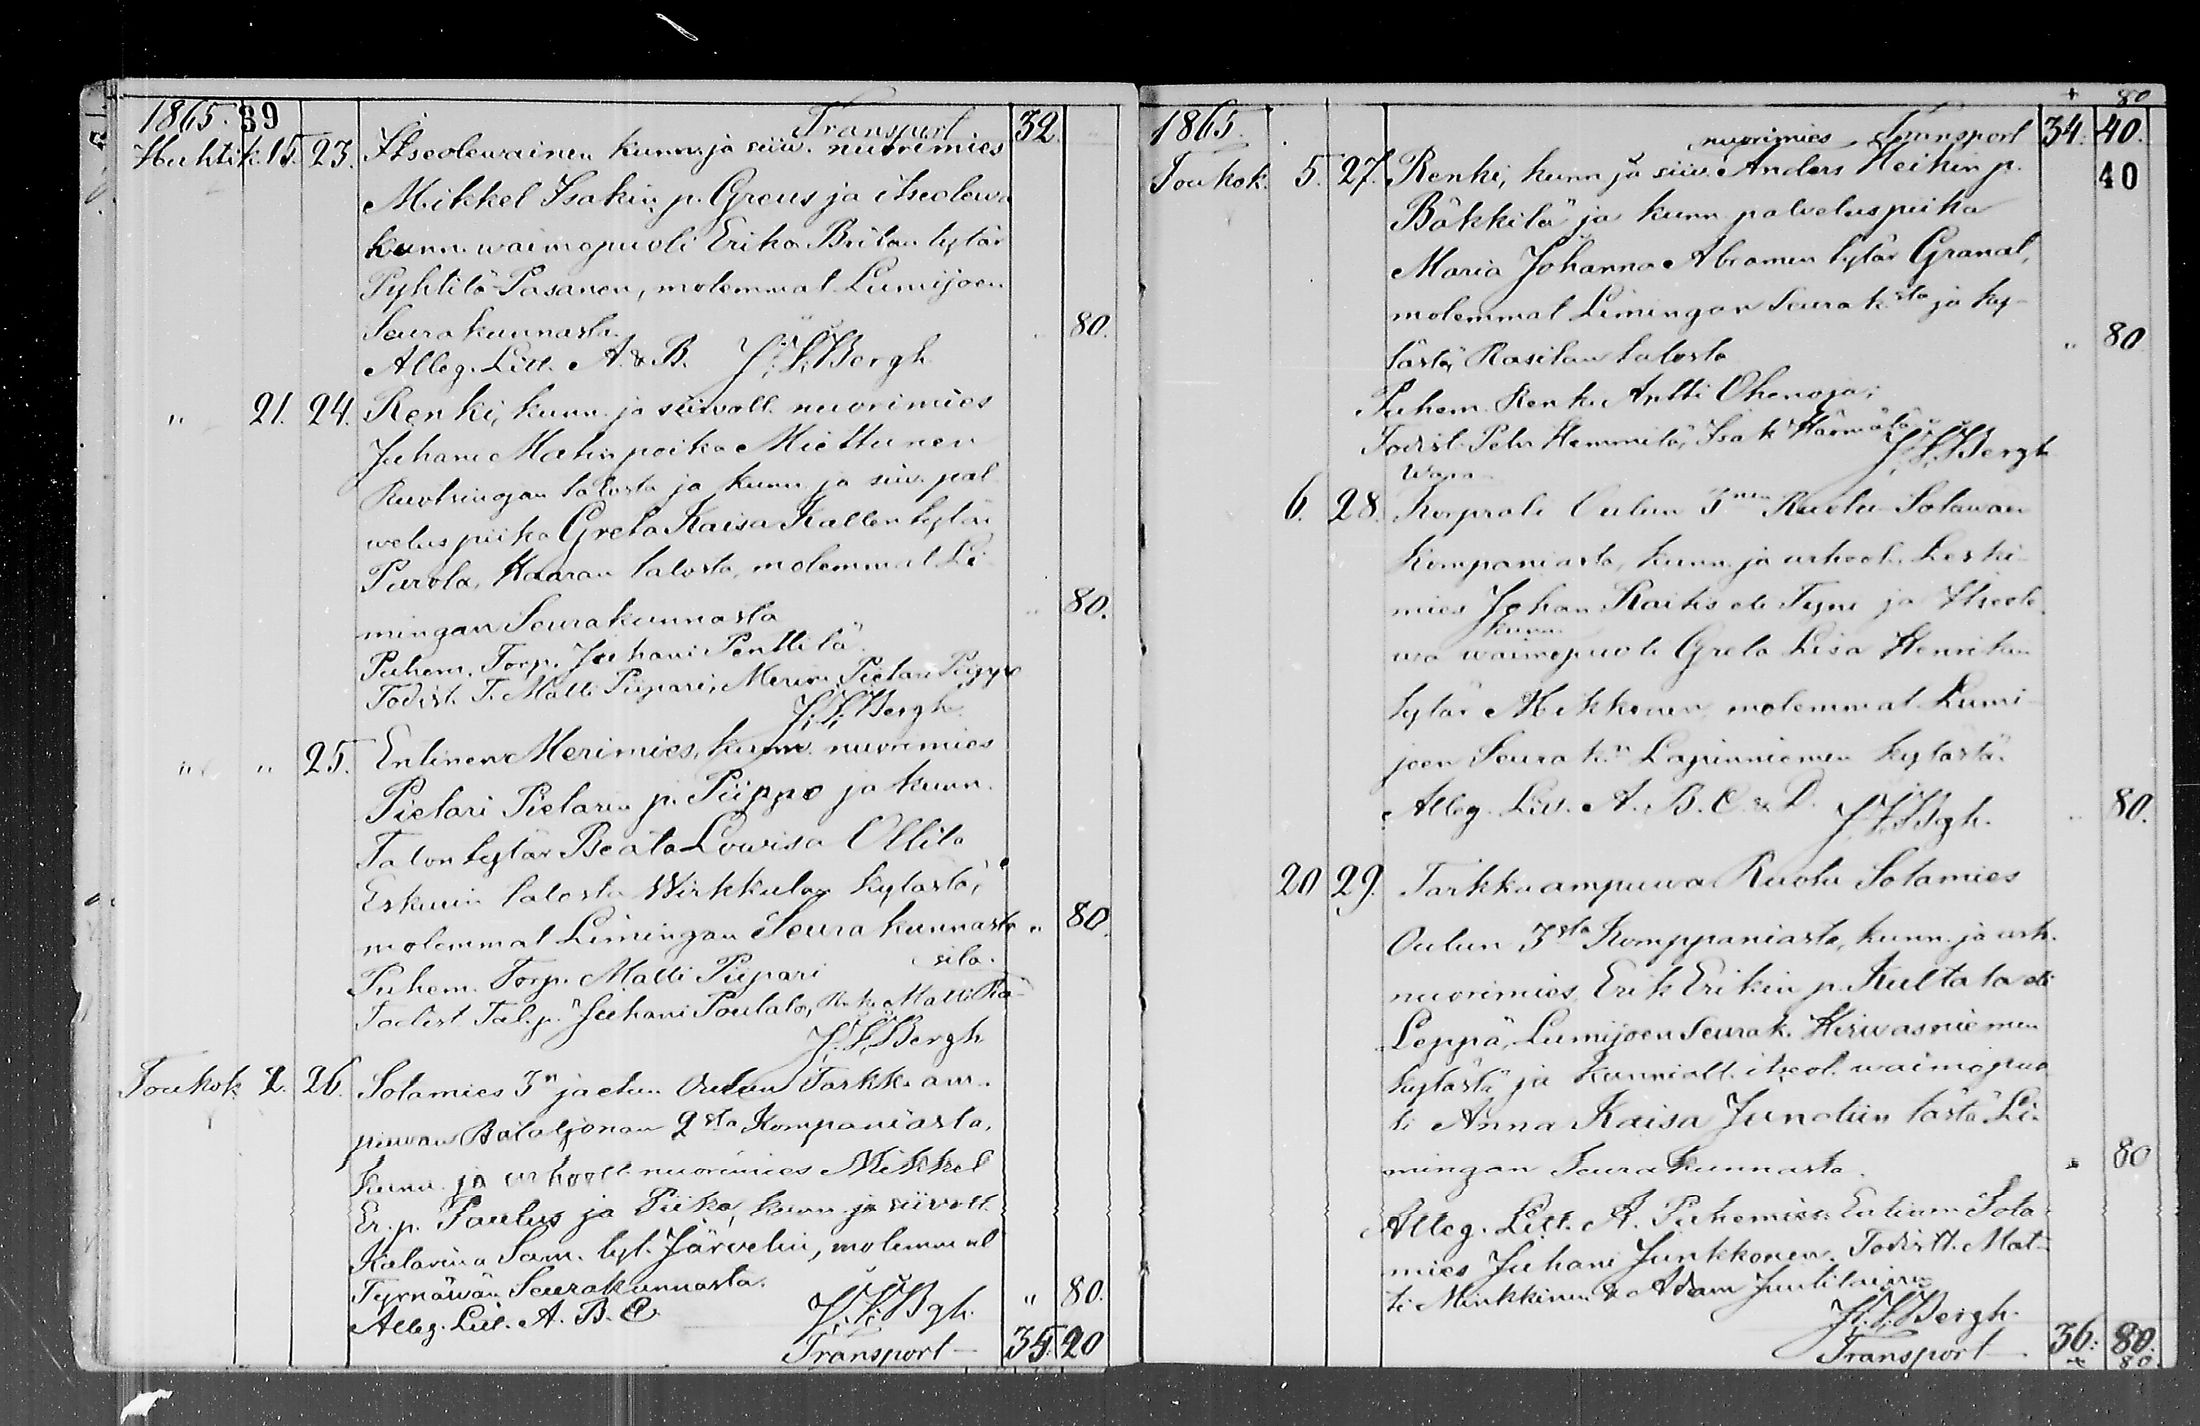 1865. 39 Transport 32
Huhtik. 15. 23. Itseolewainen kunn. ja siiw. nuorimies
Mikkel Isakin p. Greus ja itseolewa
kunn. waimopuoli Erika Britan tytär
Pyhtilä-Pasanen, molemmat Lumijoen
Seurakunnasta. " 80.
Alleg. Litt. A. & B. J. F. Bergh
" 21. 24. Renki, kunn. ja siivoll. nuorimies
Juhani Matin poika Miettunen
Ruotsingan talosta ja kunn. ja siiv. pal-
welus piika Greta Kaisa Kallen tytär
Purola, Haaran talosta, molemmat Li-
mingan Seurakunnasta " 80.
Puhem. Torp. Juhani Penttilä
Todist. T. Matti Piipari, Merim. Pietari Piippo
J. F. Bergh.
" " 25. Entinen Merimies, kunn. nuorimies
Pietari Pietarin p. Piippo ja kunn.
Talon tytär Beata Lowisa Ollila
Eskurin talosta Wirkkulan kylästä,
molemmat Limingan Seurakunnasta " 80.
Puhem. Torp. Matti Piipari
Todist. Tal. p. Juhani Poutala, Renki Matti Ra-
sila.
J. F. Bergh
Toukok. 2. 26. Sotamies 3n jaetun Oulun Tarkk. am-
puwan Bataljonan 2sta Kompaniasta,
kunn. ja urhooll. nuorimies Mikkel
Er. p. Paulus ja Piika, kunn. ja siivoll.
Katarina Sam. tyt. Järvelin, molemmat
Tyrnäwän Seurakunnasta. " 80.
Alleg. Litt. A. B. C. J. F. Bgh.
Transport 35. 20
80
1865. Transport 34. 40.
nuorimies
Toukok. 5. 27. Renki, kunn. ja siiv. Anders Heikin p. 40
Bäkkilä ja kunn. palveluspiika
Maria Johanna Abramin tytär Granat,
molemmat Limingan Seurak.sta ja ky-
lästä, Rasilan talosta " 80.
Puhem. Renki Antti Ohenoja;
Todist. Petr Hemmilä, Isak Härmälä
J. F. Bergh
Wara
6. 28. Korprali Oulun 3nen Ruotu-Sotawäen
Kompaniasta, kunn. ja urhooll. Leski-
mies Johan Raitis eli Tyni ja Itseole-
kunn.
wa waimopuoli Greta Lisa Henrikin
tytär Mikkonen, molemmat Lumi-
joen Seurak.n Lapinniemen kylästä.
Alleg. Litt. A. B. C. & D. J. F. Bgh. " 80.
20 29. Tarkkaampuwa Ruotu Sotamies
Oulun 3sta Komppaniasta, kunn. ja urh.
nuorimies, Erik Erikin p. Kultala eli
Leppä, Lumijoen Seurak. Hirwasniemen
kylästä ja kunniall. itseol. waimopuo-
li Anna Kaisa Junttiin tästä Li-
mingan Seurakunnasta. " 80
Alleg. Litt. A. Puhemies: Entinen Sota-
mies Juhani Junkkonen. Todistt. Mat-
ti Minkkinen & Adam Juntilainen
J. F. Bergh.
Transport 36. 80.
80.